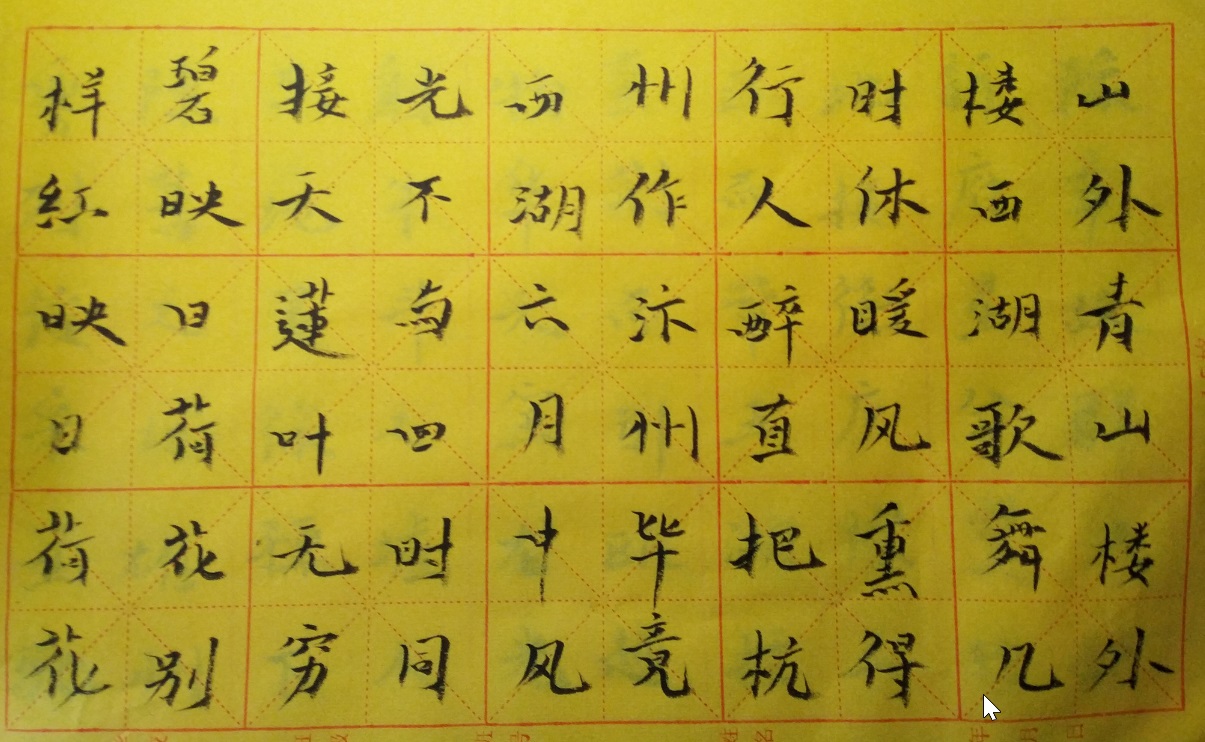 山外青山楼外
楼西湖歌舞几
时休暖风熏得
行人醉直把杭
州作汴州毕竟
西湖六月中风
光不与四时同
接天蓮叶无穷
碧映日荷花别
样紅映日荷花